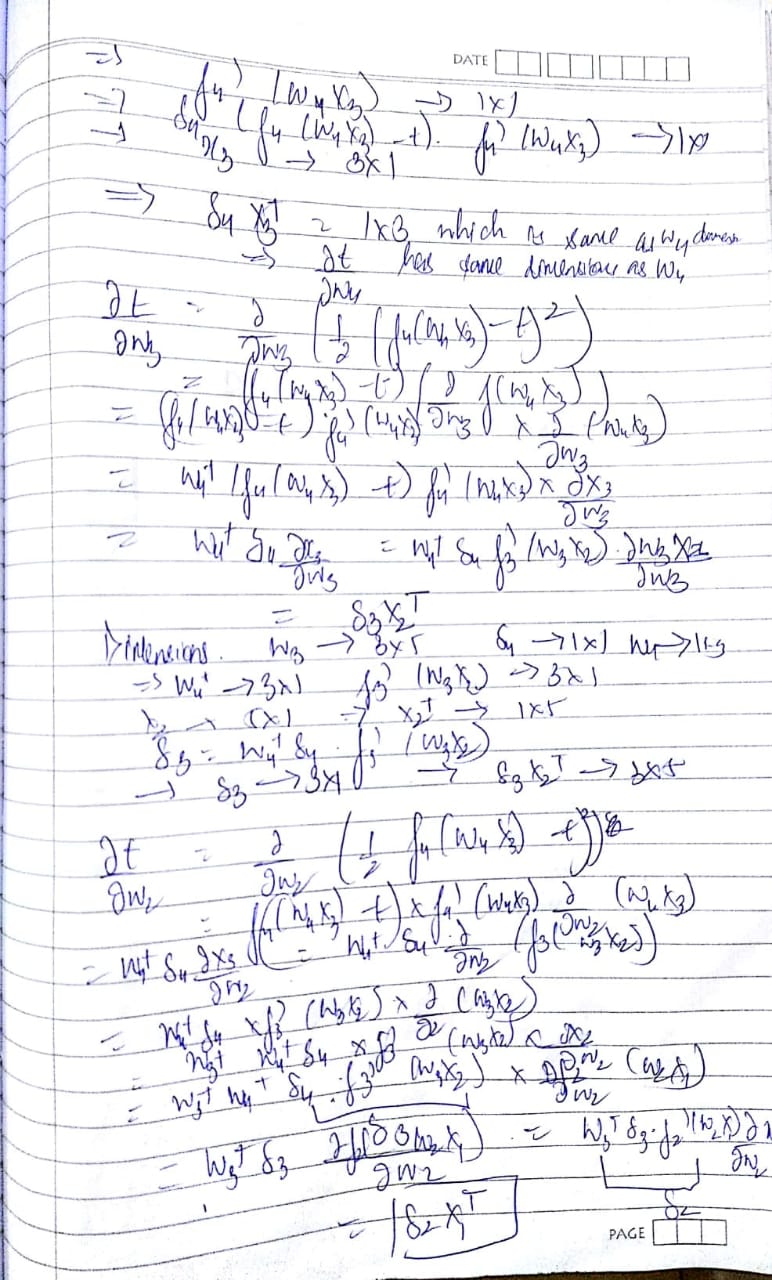 DATE
=> f₄' (w₄ x₃) -> 1x1
=> δ₄ (f₄ (w₄ x₃) - t). f₄' (w₄x₃) -> 1x1
-> x₃ -> 3x1
=> δ₄ x₃ᵀ = 1x3 which is same as w₄ dimen
=> ∂t/∂w₄ has same dimensions as w₄
∂t/∂w₃ = ∂/∂w₃ (1/2 (f₄(w₄ x₃) - t)²)
= (f₄(w₄ x₃) - t) (∂/∂w₃ f(w₄ x₃))
= (f₄(w₄x₃) - t) . f₄' (w₄x₃) x ∂/∂w₃ (w₄x₃)
= w₄ᵀ (f₄(w₄ x₃) - t) f₄' (w₄x₃) x ∂x₃/∂w₃
= w₄ᵀ δ₄ ∂x₃/∂w₃ = w₄ᵀ δ₄ f₃' (w₃ x₂) . ∂w₃ x₂/∂w₃
= δ₃ x₂ᵀ
Dimensions. w₃ -> 3x5 δ₄ -> 1x1 w₄ -> 1x3
=> w₄ᵀ -> 3x1 f₃' (w₃ x₂) -> 3x1
x₂ -> 5x1 -> x₂ᵀ -> 1x5
δ₃ = w₄ᵀ δ₄ . f₃' (w₃x₂)
-> δ₃ -> 3x1 -> δ₃ x₂ᵀ -> 3x5
∂t/∂w₂ = ∂/∂w₂ (1/2 f₄(w₄ x₃) - t)²)
= (f₄(w₄ x₃) - t) x f₄' (w₄x₃) ∂/∂w₂ (w₄ x₃)
= w₄ᵀ δ₄ ∂x₃/∂w₂ = w₄ᵀ δ₄ . ∂/∂w₂ (f₃(w₃x₂))
= w₄ᵀ δ₄ x f₃' (w₃x₂) x ∂ (w₃x₂)
= w₃ᵀ w₄ᵀ δ₄ x f₃' (w₃x₂) x ∂x₂/∂w₂
= w₃ᵀ w₄ᵀ δ₄ . f₃' (w₃x₂) x ∂f₂/∂w₂ (w₂x₁)
δ₃
= w₃ᵀ δ₃ ∂f₂(w₂x₁)/∂w₂ = w₃ᵀ δ₃ . f₂' (w₂x₁)
δ₂
= δ₂ x₁ᵀ
PAGE